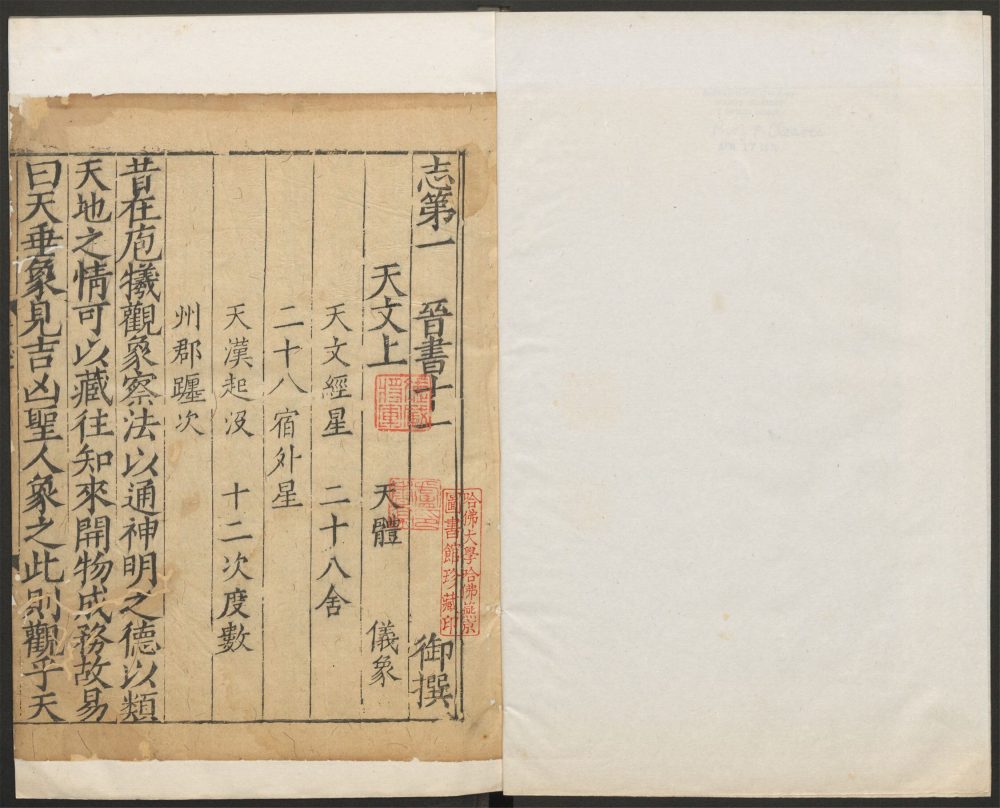 志第一 晉書十一 御撰
天文上 天體 儀象
天文經星 二十八舍
二十八宿外星
天漢起没 十二次度數
州郡躔次
昔在庖犧觀象察法以通神明之德以類
天地之情可以藏往知來開物成務故易
曰天垂象見吉凶聖人象之此則觀乎天
哈佛大學哈佛燕京
圖書館珍藏印